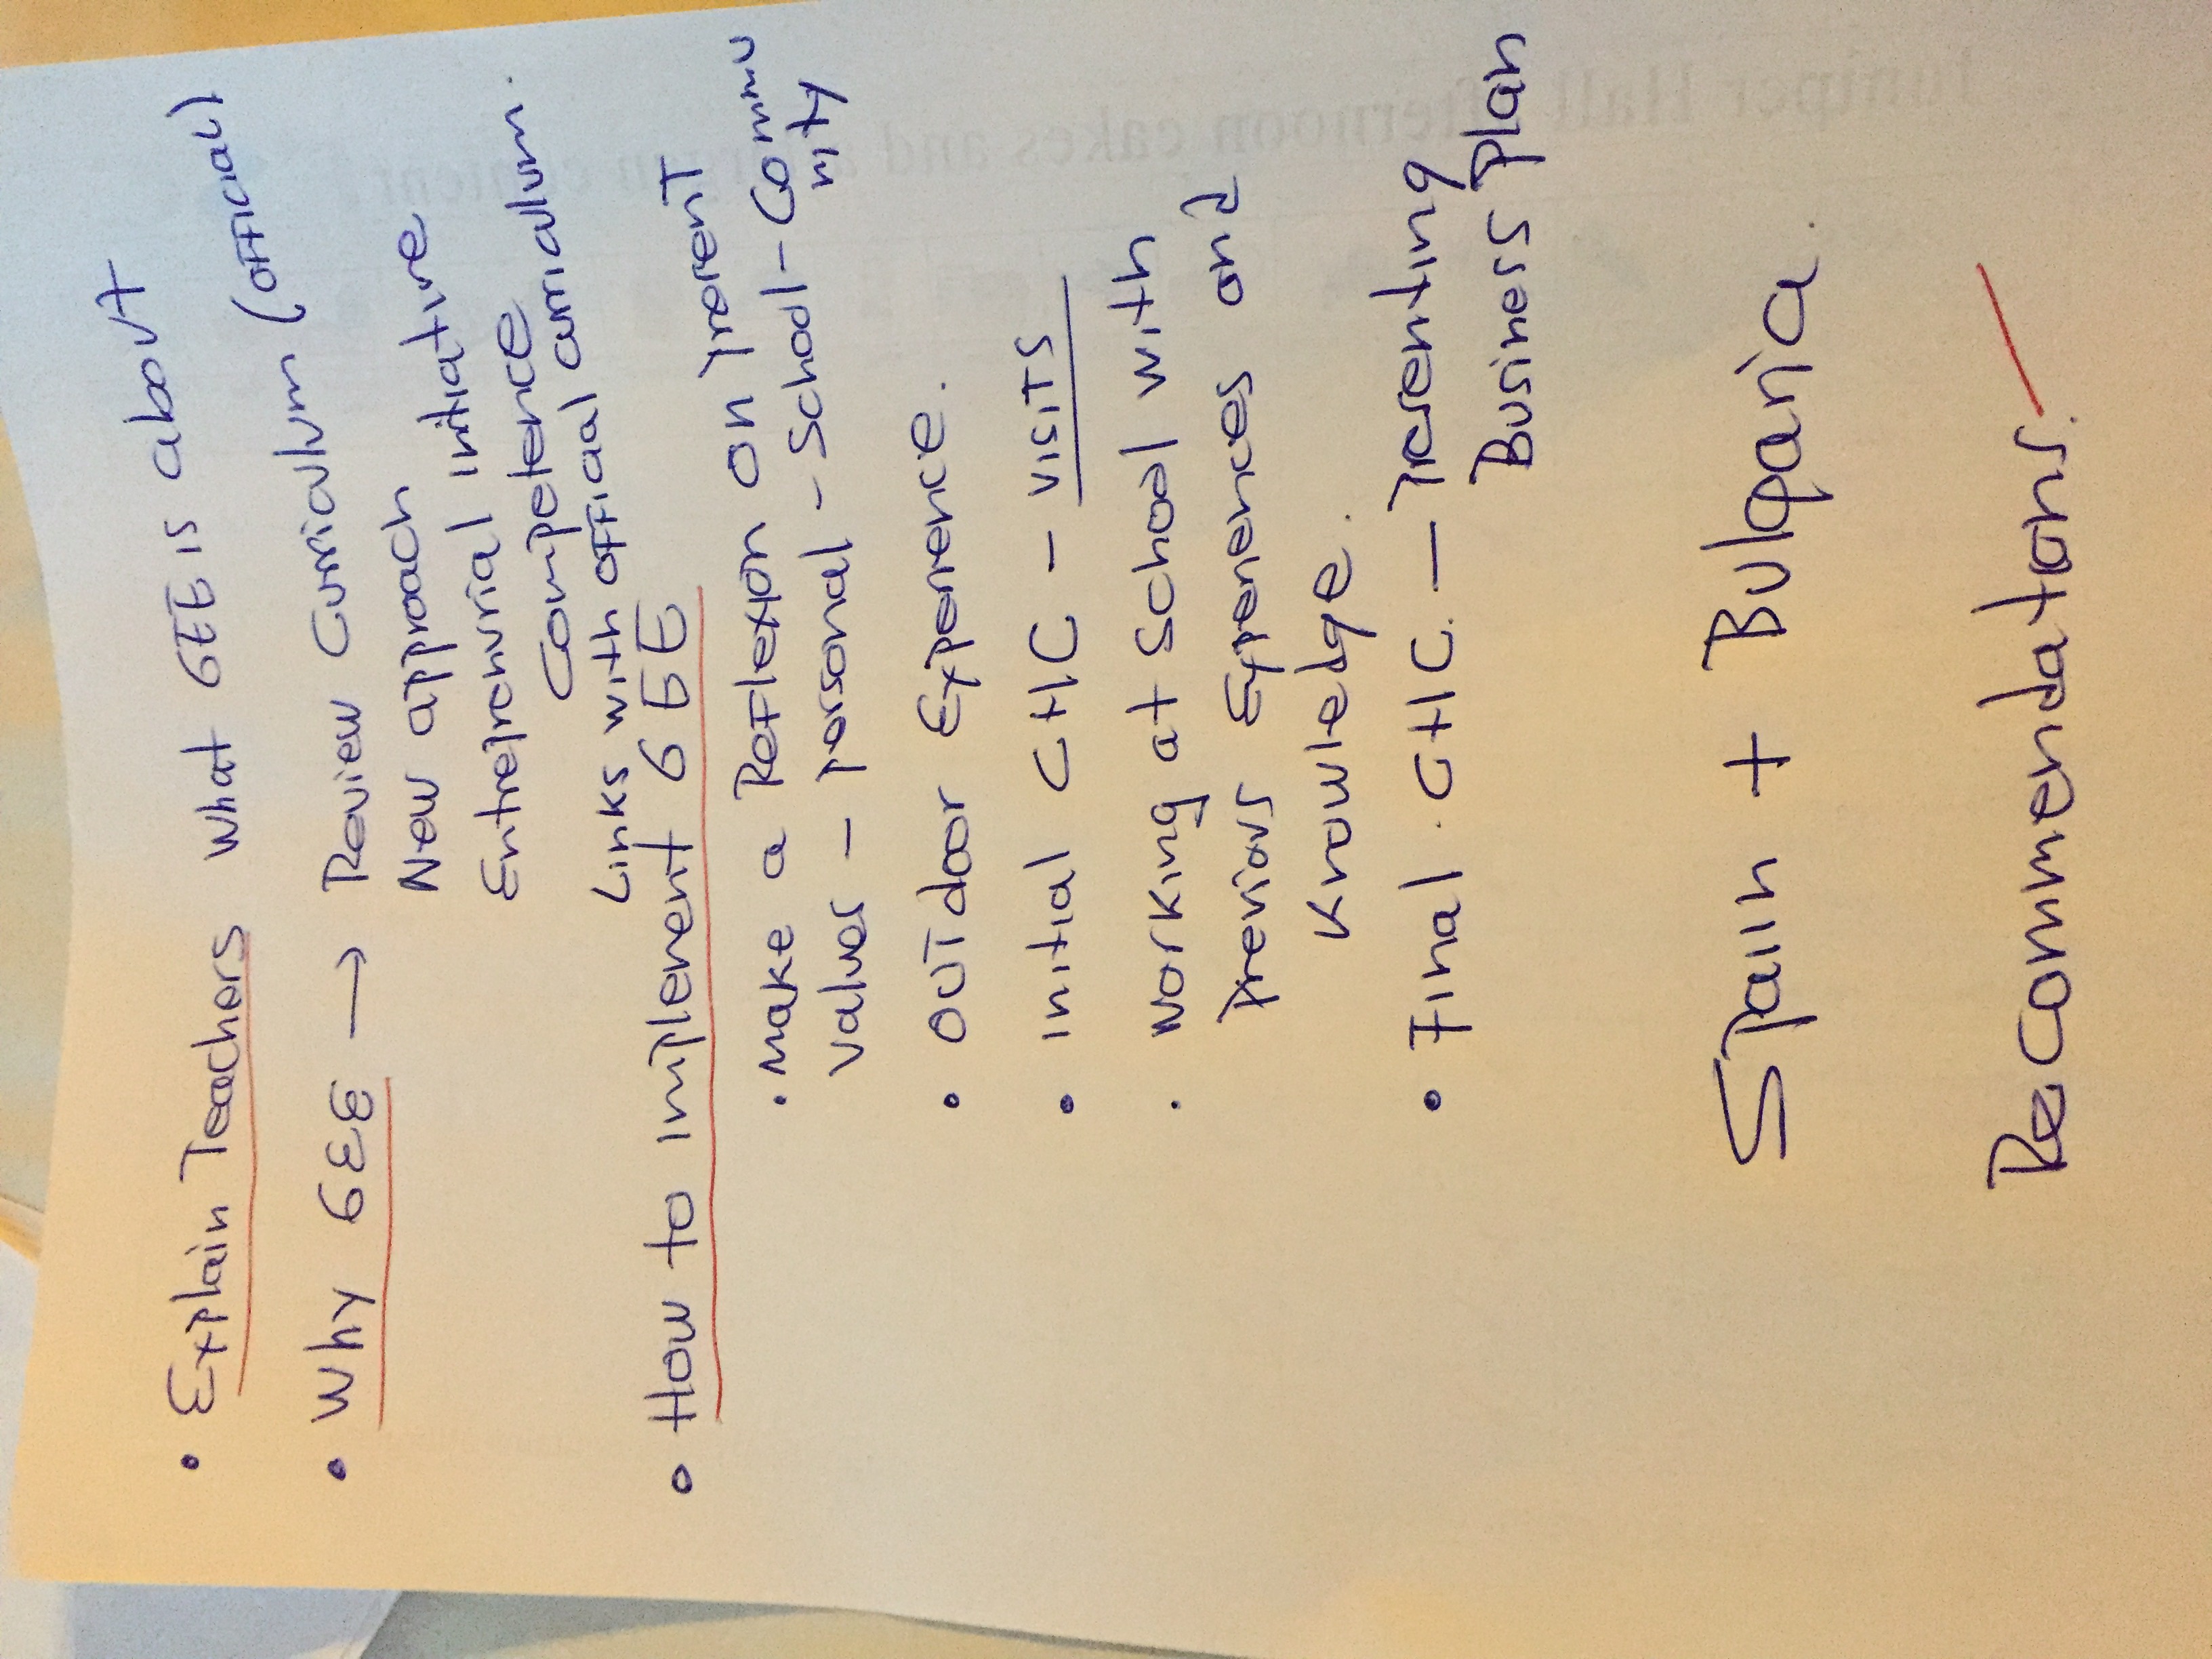 • Explain Teachers what GEE is about
• Why GEE → Review Curriculum (official)
New approach
Entreprenurial initiative
Competence
Links with official curriculum.
• How to implement GEE
• Make a Reflexion on present
values - personal - School - Commu
nity
• Outdoor Experience.
• initial CHC - visits
• working at School with
previous Experiences and
Knowledge.
• Final. CHC. - Presenting
Business plan
Spain + Bulgaria.
Recommendations.